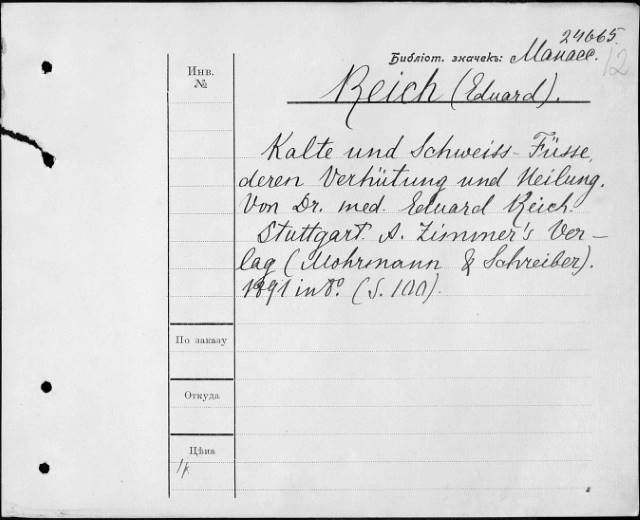 24665.
Библіот. значекъ: Манасс.
12
Инв.
№
Reich (Eduard).
Kalte und Schweiss-Füsse,
deren Verhütung und Heilung.
Von Dr. med. Eduard Reich.
Stuttgart. A. Zimmer's Ver–
lag (Mohrmann & Schreiber).
1891 in 8º. (S. 100).
По заказу
Откуда
Цѣна